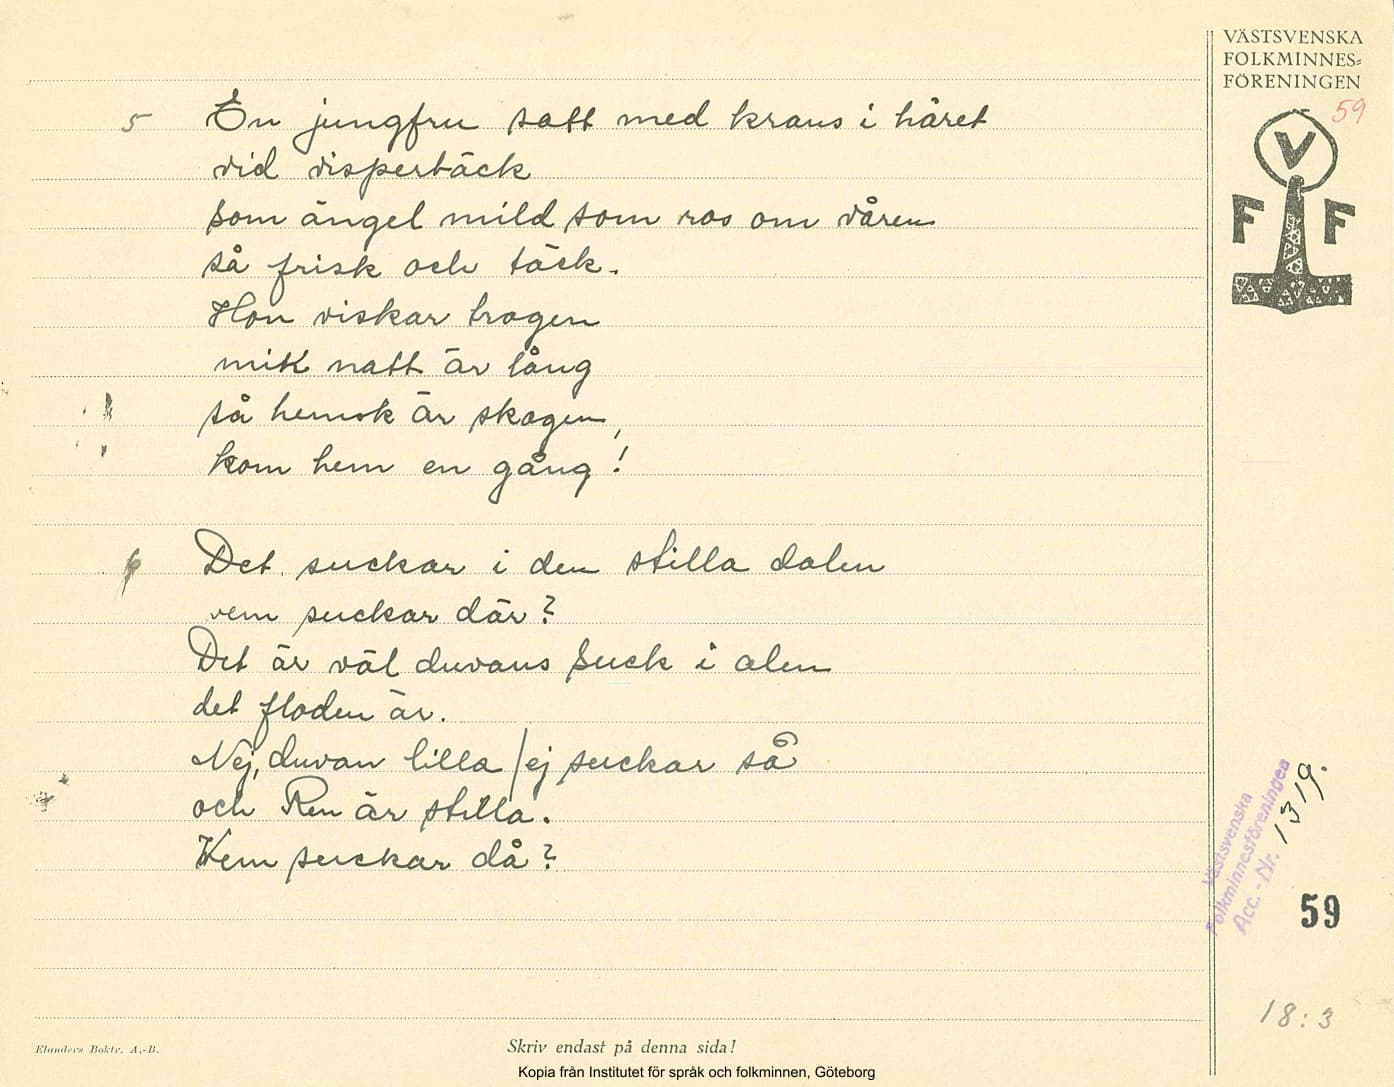 VÄSTSVENSKA
FOLKMINNES-
FÖRENINGEN
59
V
F F
5 En jungfru satt med krans i håret
vid visperbäck
som ängel mild som ros om våren
så frisk och täck.
Hon viskar trogen
mik natt är lång
så hemsk är skogen,
kom hem en gång!
6 Det suckar i den stilla dalen
vem suckar där?
Det är väl duvans suck i alen
det floden är.
Nej, duvan lilla / ej suckar så
och Ren är stilla.
Vem suckar då?
Västsvenska
Folkminnesföreningen
Acc.-Nr. 1319.
59
18:3
Elanders Boktr. A.-B.
Skriv endast på denna sida!
Kopia från Institutet för språk och folkminnen, Göteborg